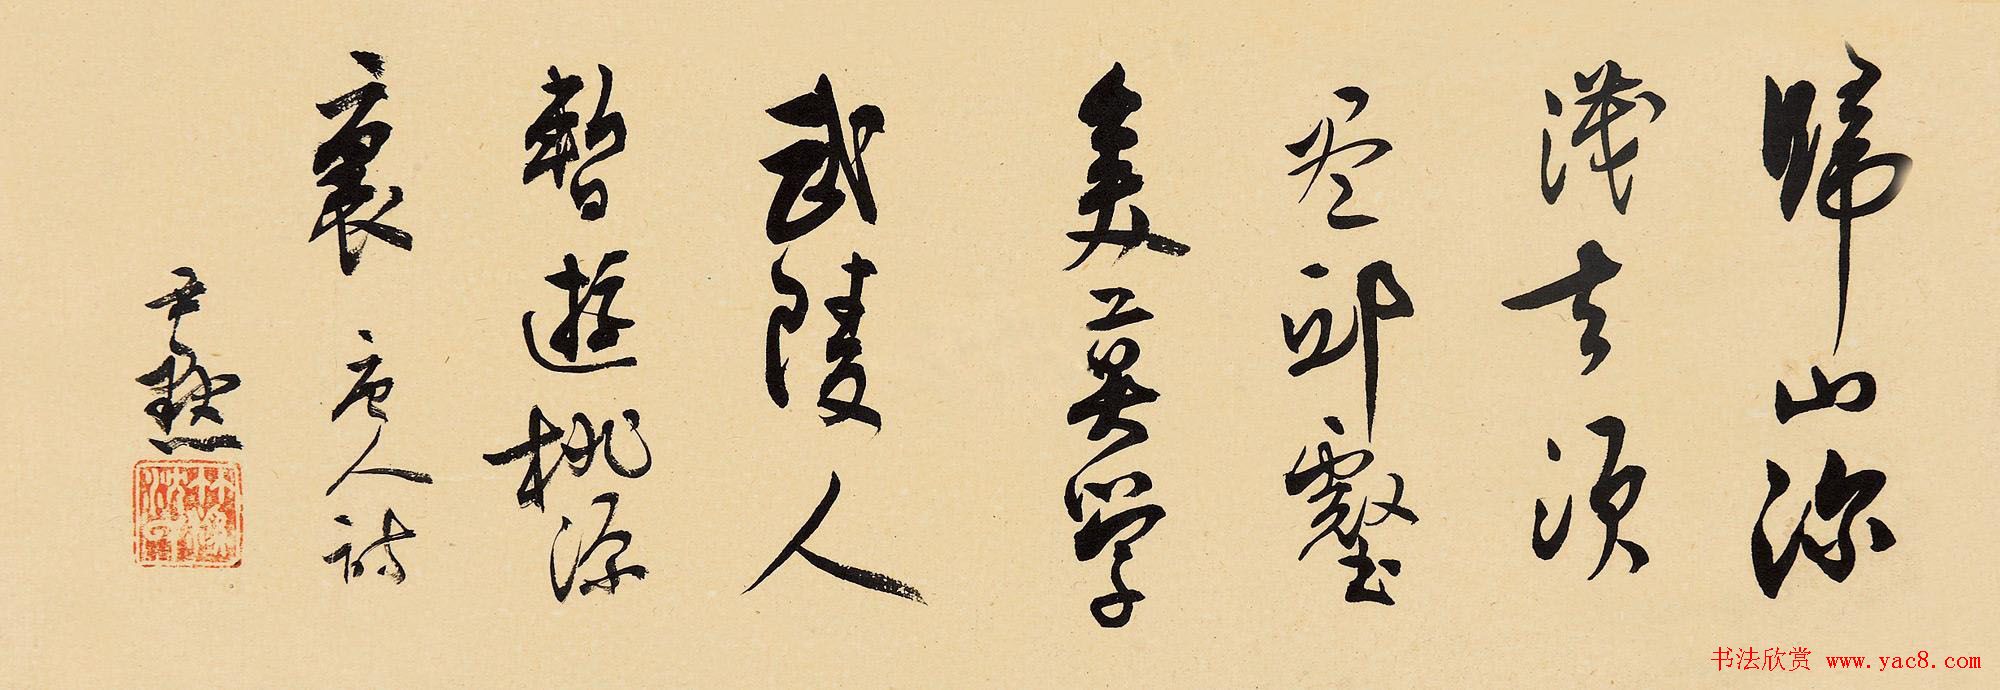 歸山深
淺去須
尽邱壑
美莫學
武陵人
暫遊桃源
裏 唐人詩
尹默
书法欣赏 www.yac8.com